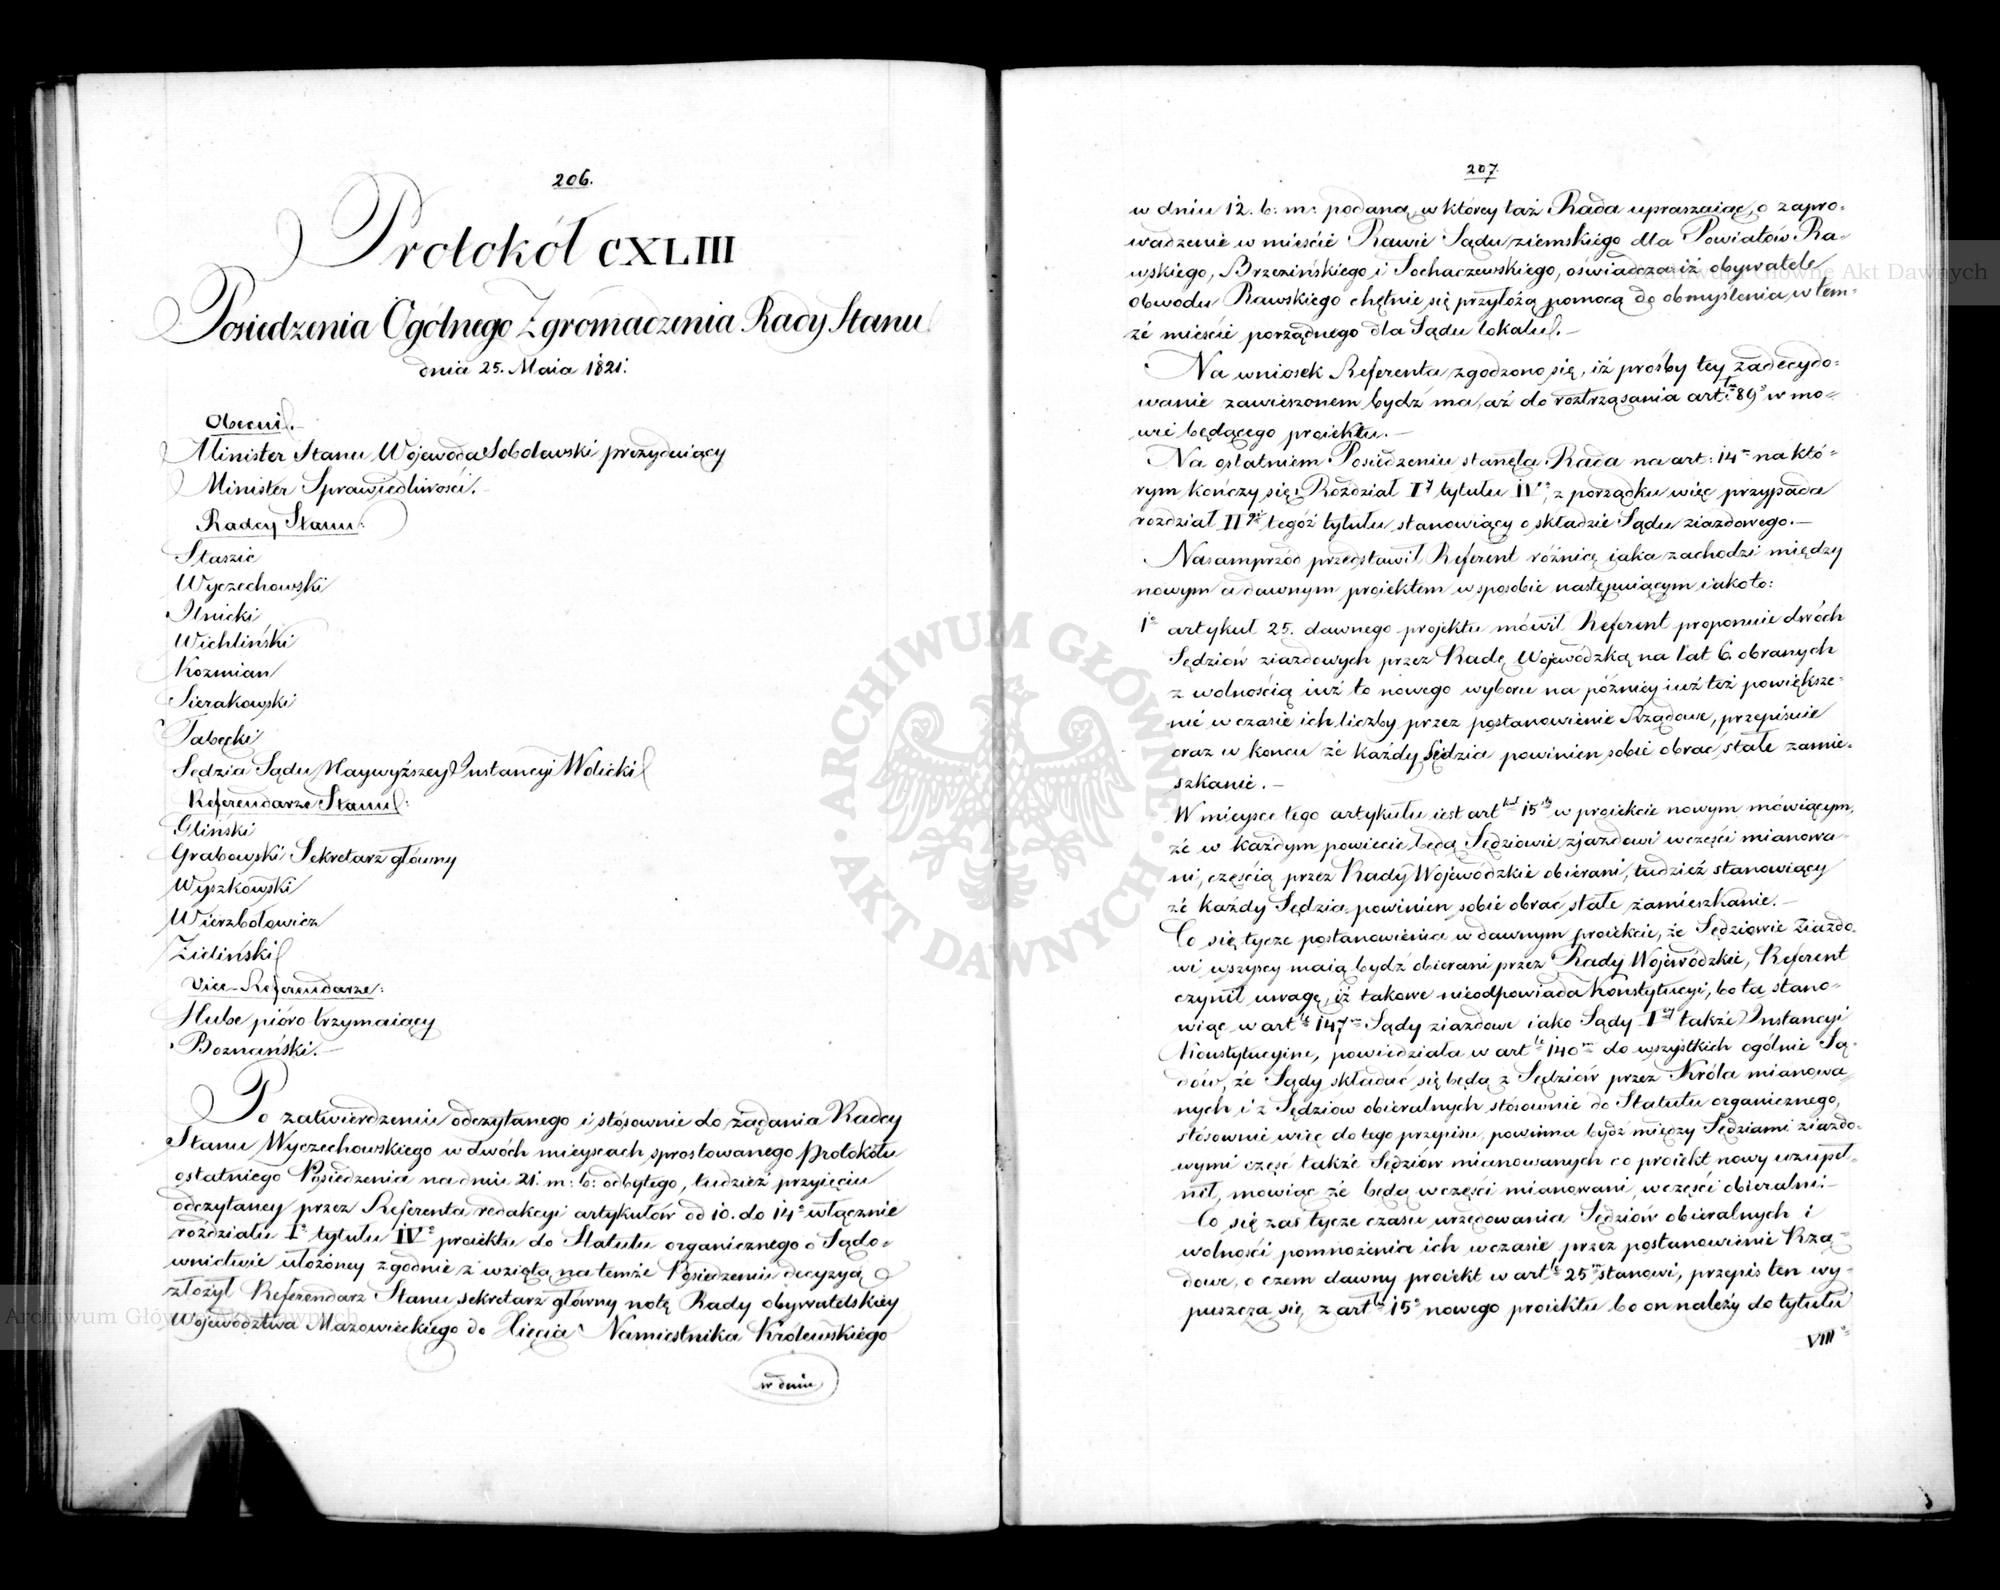 206.
Protokół CXLIII
Posiedzenia Ogólnego Zgromadzenia Rady Stanu
dnia 25. Maia 1821.
Obecni.
Minister Stanu Wojewoda Sobolewski prezyduiący
Minister Sprawiedliwości.
Radcy Stanu:
Staszic
Wyczechowski
Ilnicki
Wichliński
Kozmian
Sierakowski
Tabęcki
Sędzia Sądu Naywyższey Instancyi Wolicki
Referendarze Stanu:
Gliński
Grabowski Sekretarz główny
Wyszkowski
Wierzbołowicz
Zieliński
Vice-Referendarze:
Hube pióro trzymaiący
Boznański.
Po zatwierdzeniu odczytanego i stósownie do żądania Radcy
Stanu Wyczechowskiego w dwóch mieyscach sprostowanego protokółu
ostatniego Posiedzenia na dniu 21. m: b: odbytego, tudzież przyięciu
odczytaney przez Referenta redakcyi artykułów od 10. do 14o włącznie
rozdziału Io tytułu IVo proiektu do Statutu organicznego o Sądo-
wnictwie ułożoney zgodnie z wziętą na temże Posiedzeniu decyzyą
złożył Referendarz Stanu sekretarz główny notę Rady obywatelskiey
Województwa Mazowieckiego do Xięcia Namiestnika Królewskiego
w dniu
207
w dniu 12. b: m: podaną, w którey taż Rada upraszaiąc o zapro-
wadzenie w mieście Rawie Sądu ziemskiego dla Powiatów Ra-
wskiego, Brzezińskiego i Sochaczewskiego, oświadcza iż obywatele
obwodu Rawskiego chętnie się przyłożą pomocą do obmyślenia w tem-
że mieście porządnego dla Sądu lokalu.
Na wniosek Referenta zgodzono się, iż prośby tey zadecydo-
wanie zawieszonem bydź ma, aż do roztrząsania art. 89o w mo-
wie będącego proiektu.
Na ostatniem Posiedzeniu stanęła Rada na art: 14m na któ-
rym kończy się Rozdział Iy tytułu IVo, z porządku więc przypada
rozdział IIgi tegóż tytułu stanowiący o składzie Sądu ziazdowego.
Nasamprzód przedstawił Referent różnicę iaka zachodzi między
nowym a dawnym proiektem w sposobie następuiącym iako to:
1o artykuł 25. dawnego projektu mówił Referent proponuie dwóch
Sędziów ziazdowych przez Radę Wojewódzką na lat 6. obranych
z wolnością iuż to nowego wyboru na późniey iuż też powiększe-
nie w czasie ich liczby przez postanowienie Rządowe, przepisuie
oraz w końcu że każdy Sędzia powinien sobie obrać stałe zamie-
szkanie.
W mieysce tego artykułu iest artkuł 15ty w proiekcie nowym mówiącym,
że w każdym powiecie będą Sędziowie zjazdowi w części mianowa-
ni, częścią przez Rady Wojewódzkie obierani, tudzież stanowiący
że każdy Sędzia powinien sobie obrać stałe zamieszkanie.
Co się tycze postanowienia w dawnym proiekcie, że Sędziowie Ziazdo-
wi wszyscy maią bydź obierani przez Rady Wojewódzkie, Referent
czynił uwagę, iż takowe nieodpowiada Konstytucyi, bo ta stano-
wiąc w artle 147m Sądy ziazdowe iako Sądy Iey także Instancyi
Konstytucyine, powiedziała w artle 140m do wszystkich ogólnie Są-
dów, że Sądy składać się będą z Sędziów przez Króla mianowa-
nych i z Sędziów obieralnych stósownie do Statutu organicznego,
stósownie więc do tego przepisu, powinna bydź między Sędziami ziazdo-
wymi część także Sędziów mianowanych co proiekt nowy uzupeł-
nił, mówiąc że będą w części mianowani, w części obieralni.
Co się zaś tycze czasu urzędowania Sędziów obieralnych i
wolności pomnożenia ich w czasie przez postanowienie Rzą-
dowe, o czem dawny proiekt w artle 25m stanowi, przepis ten wy-
puszcza się z artłu 15o nowego proiektu bo on należy do tytułu
VIIIo
ARCHIWUM GŁÓWNE AKT DAWNYCH
Archiwum Główne Akt Dawnych
Archiwum Główne Akt Dawnych